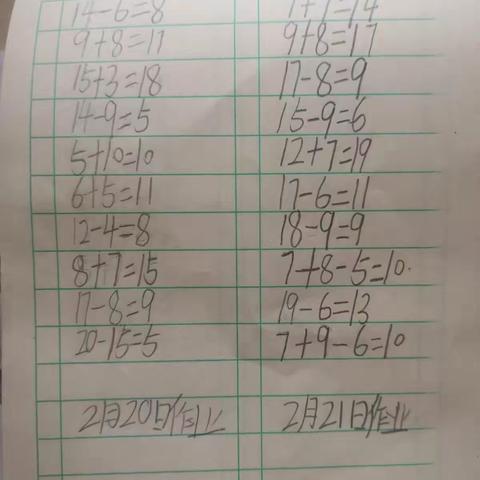 14-6=8
9+8=17
15+3=18
14-9=5
5+10=10
6+5=11
12-4=8
8+7=15
17-8=9
20-15=5
2月20日作业
7+7=14
9+8=17
17-8=9
15-9=6
12+7=19
17-6=11
18-9=9
7+8-5=10.
19-6=13
7+9-6=10
2月21日作业